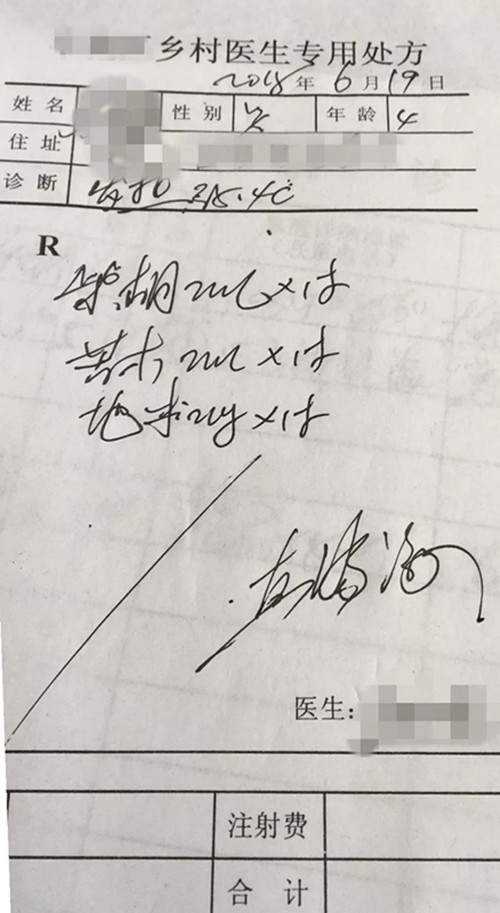 乡村医生专用处方
2018年6月19日
姓名 性别 女 年龄 4
住址
诊断 发热 38.4℃
R
柴胡 2ml×1付
2ml×1付
地米 2mg×1付
医生:
注射费
合计